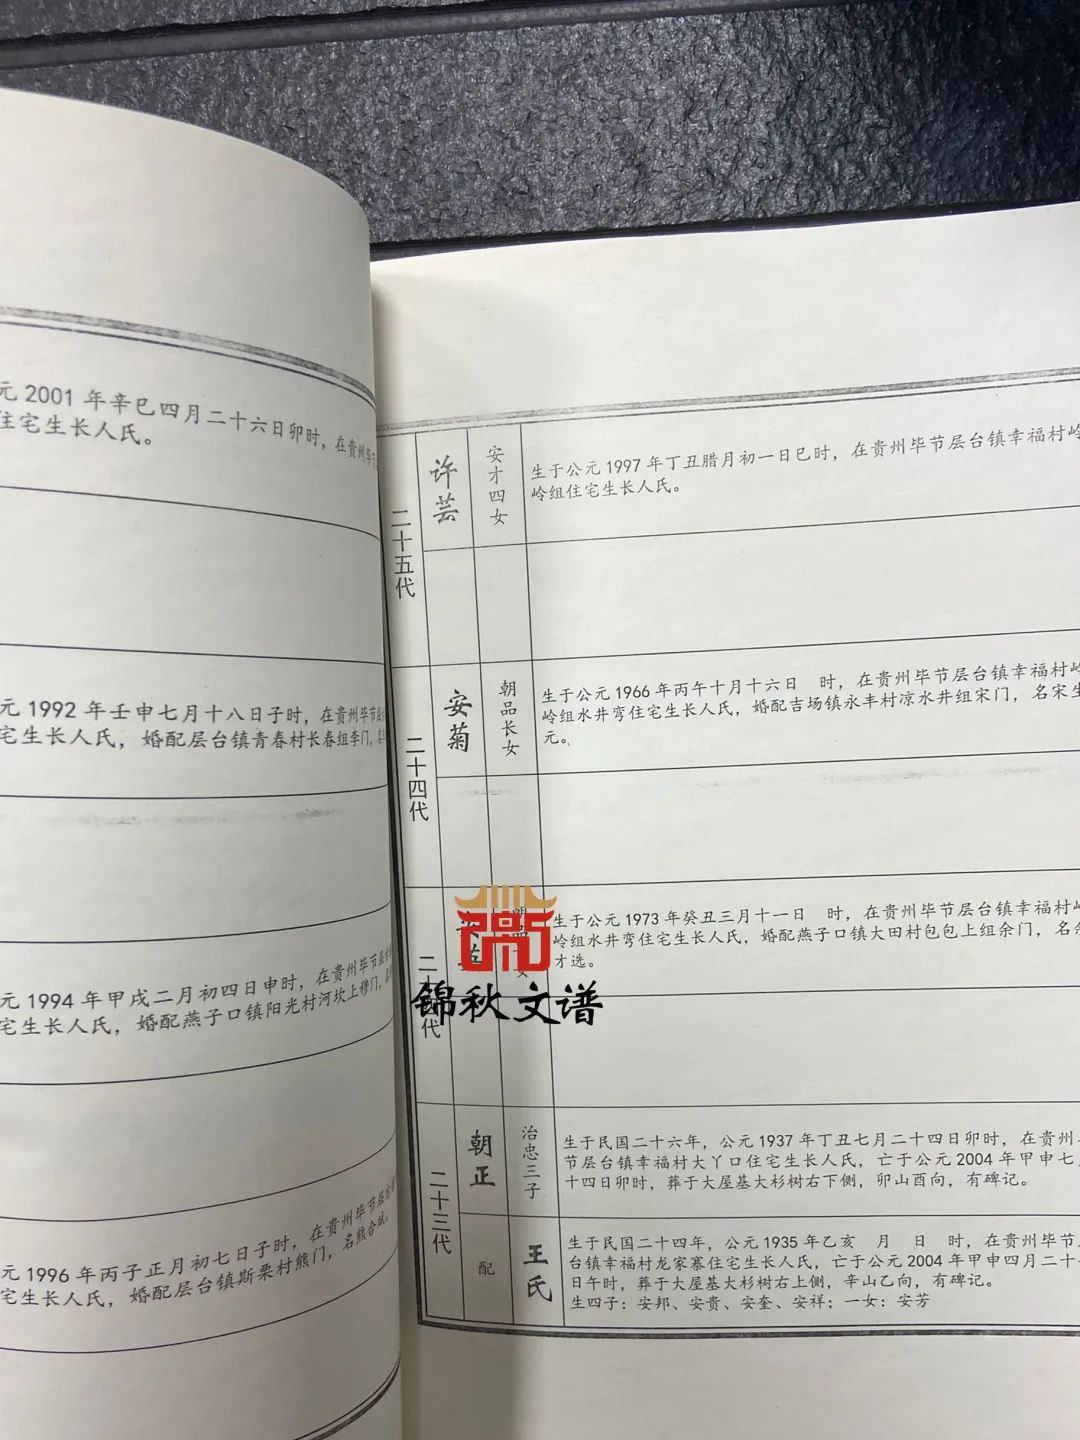 元 2001 年辛巳四月二十六日卯时，在贵州毕节
住宅生长人氏。
元 1992 年壬申七月十八日子时，在贵州毕节层
宅生长人氏，婚配层台镇青春村长春组李门，名
元 1994 年甲戌二月初四日申时，在贵州毕节层台
宅生长人氏，婚配燕子口镇阳光村河坎上穆门，名
元 1996 年丙子正月初七日子时，在贵州毕节层台
宅生长人氏，婚配层台镇斯栗村熊门，名熊合斌。
二十五代
许芸
安才四女
生于公元 1997 年丁丑腊月初一日巳时，在贵州毕节层台镇幸福村岭
岭组住宅生长人氏。
二十四代
安菊
朝品长女
生于公元 1966 年丙午十月十六日　时，在贵州毕节层台镇幸福村岭
岭组水井弯住宅生长人氏，婚配吉场镇永丰村凉水井组宋门，名宋生
元。
二十四代
生于公元 1973 年癸丑三月十一日　时，在贵州毕节层台镇幸福村岭
岭组水井弯住宅生长人氏，婚配燕子口镇大田村包包上组余门，名余
才选。
锦秋文谱
二十三代
朝正
治忠三子
生于民国二十六年，公元 1937 年丁丑七月二十四日卯时，在贵州
节层台镇幸福村大丫口住宅生长人氏，亡于公元 2004 年甲申七
十四日卯时，葬于大屋基大杉树右下侧，卯山酉向，有碑记。
配
王氏
生于民国二十四年，公元 1935 年乙亥　月　日　时，在贵州毕节
台镇幸福村龙家寨住宅生长人氏，亡于公元 2004 年甲申四月二十
日午时，葬于大屋基大杉树右上侧，辛山乙向，有碑记。
生四子：安邦、安贵、安奎、安祥；一女：安芳